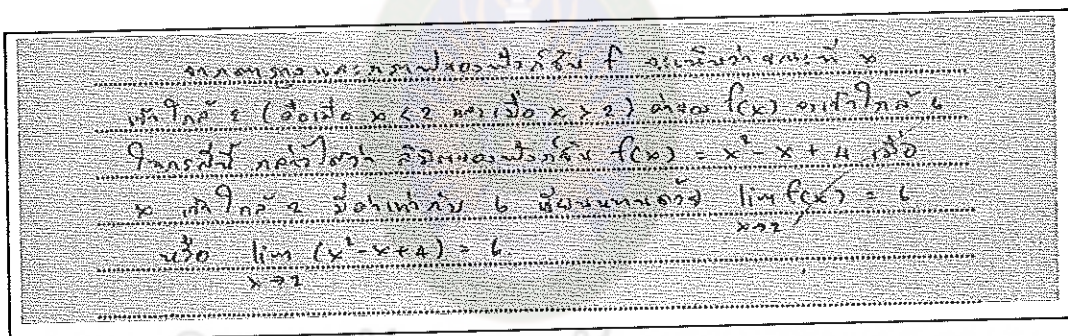 จากตารางและกราฟของฟังก์ชัน f จะเห็นว่า ขณะที่ x
เข้าใกล้ 2 (คือเมื่อ x < 2 และเมื่อ x > 2) ค่าของ f(x) จะเข้าใกล้ 6
ในกรณีนี้ กล่าวได้ว่า ลิมิตของฟังก์ชัน f(x) = x² - x + 4 เมื่อ
x เข้าใกล้ 2 มีค่าเท่ากับ 6 เขียนแทนด้วย lim f(x) = 6
x→2
หรือ lim (x² - x + 4) = 6
x→2